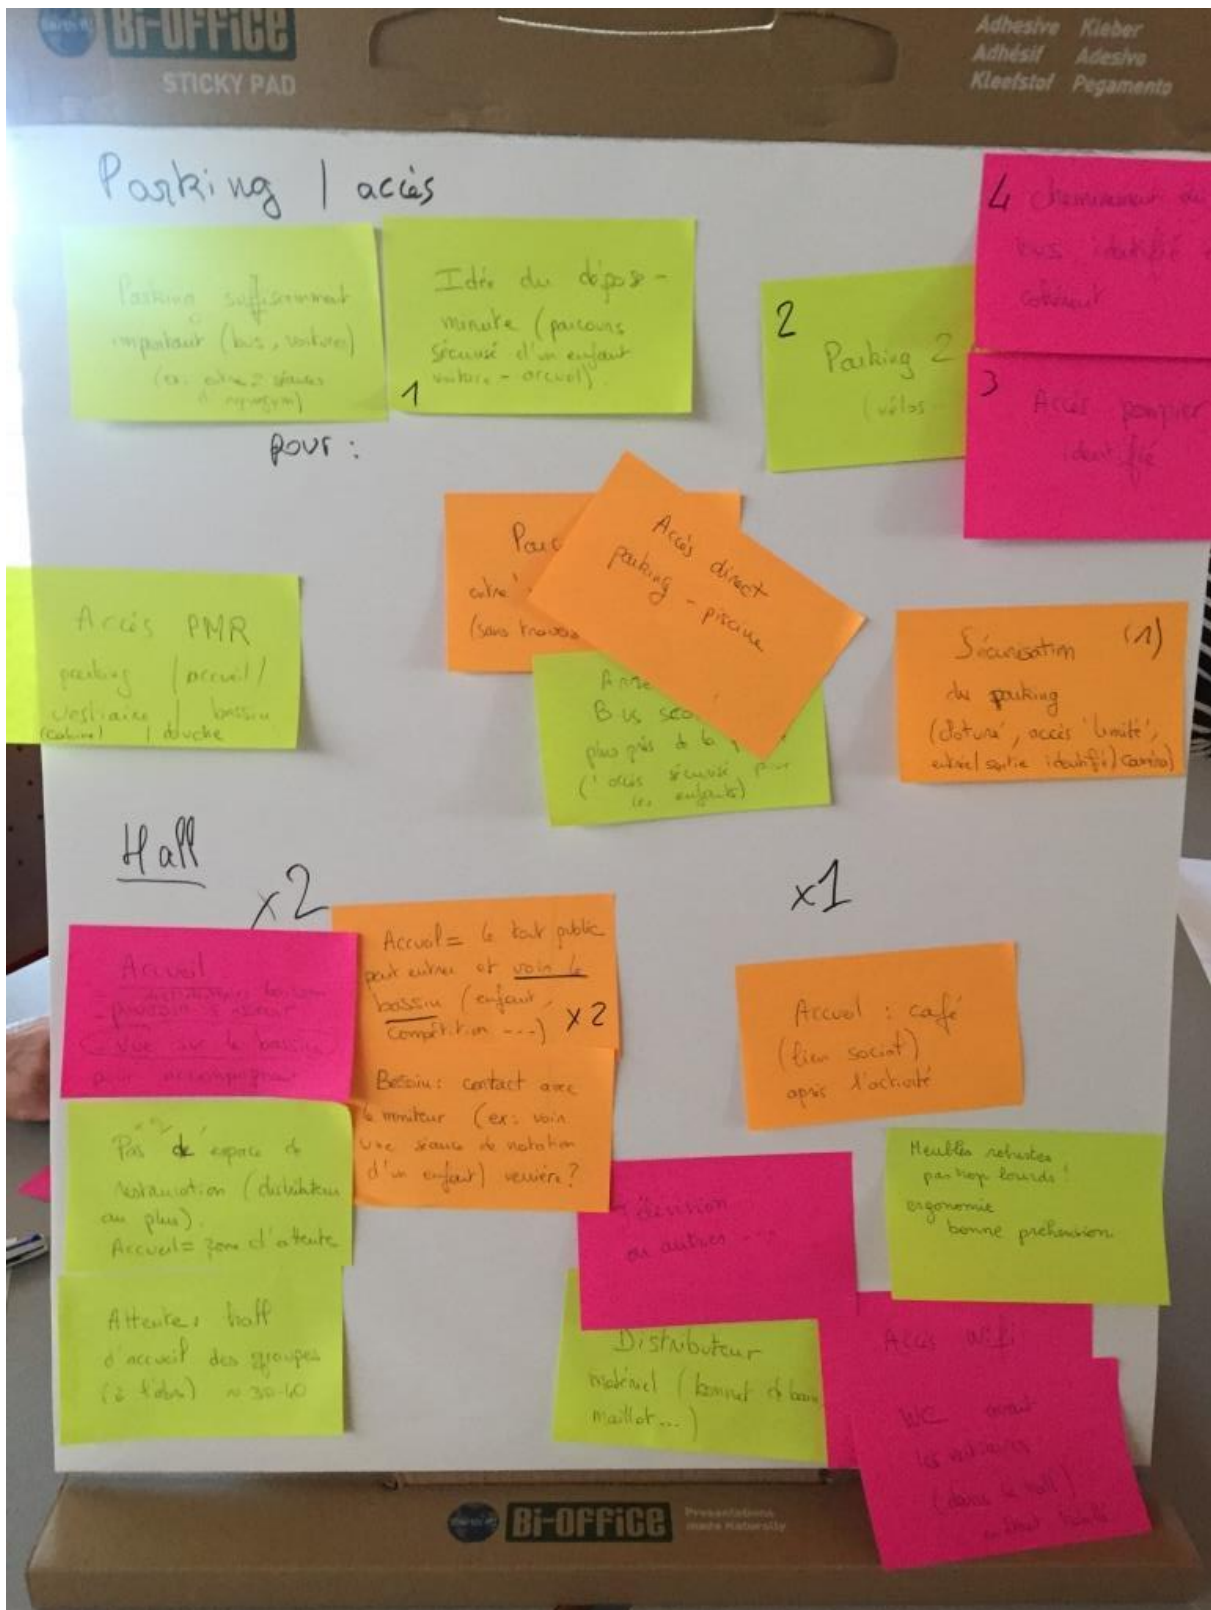 Bi-OFFiCE
STICKY PAD
Adhesive Kleber
Adhésif Adesivo
Kleefstof Pegamento
Parking / accès
Parking suffisamment
important (bus, voitures)
(ex: entre 2 séances
Idée du dépose-
minute (parcours
sécurisé d'un enfant
voiture - accueil)
1
2
Parking 2
(vélos
4 Cheminement de
bus identifié
cohérent
3 Accès pompier
identifié
pour :
Parc
entre
(sans travers
Accès direct
parking - piscine
Arrê
Bus sco
plus près de la
(accès sécurisé pour
les enfants)
Accès PMR
parking / accueil /
vestiaire / bassin
(cabine) / douche
Sécurisation (1)
du parking
(cloturé, accès limité,
entrée/sortie identifié) caméra)
Hall
x2
x1
Accueil
distributeur boisson
- vue sur le bassin
pour accompagnant
Accueil = le tout public
peut entrer et voir le
bassin (enfant,
compétition ...) x2
Besoin : contact avec
le moniteur (ex: voir
une séance de natation
d'un enfant) verrière ?
Accueil : café
(lien social)
après l'activité
x2
Pas de espace de
restauration (distributeur
au plus).
Accueil = zone d'attente
Attente, hall
d'accueil des groupes
(à l'abri) ~ 30-40
Télévision
ou autres ...
Meubles robustes
pas trop lourds !
ergonomie
bonne préhension.
Distributeur
matériel (bonnet de bain
maillot...)
Accès Wifi
WC avant
les vestiaires
(dans le hall)
Bi-OFFiCE
Presentations
made Naturally